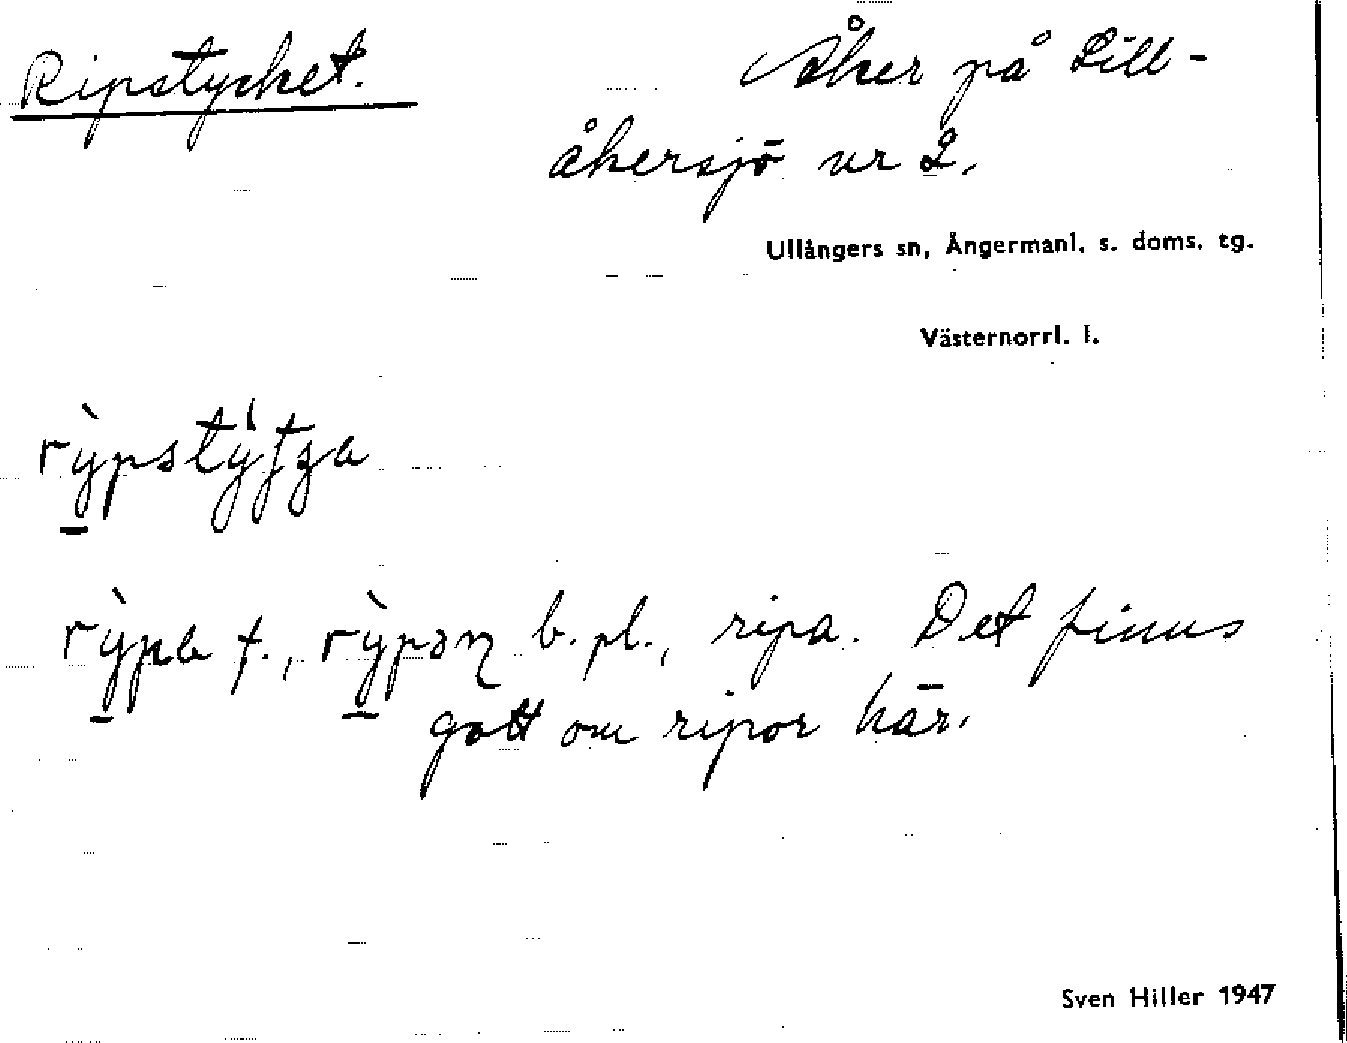 Ripstycket.
Åker på Lill-
åkersjö nr 2.
Ullångers sn, Ångermanl. s. doms. tg.
Västernorrl. l.
rỳpa f., rỳpəɳ b. pl., ripa. Det finns
gott om ripor här.
Sven Hiller 1947